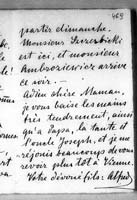 469
partir dimanche.
Monsieur Szczerbicki
est ici, et monsieur
Ambroziewicz arrive
ce soir. —
Adieu chère Maman,
je vous baise les mains
très tendrement, ainsi
qu'à Papa, la tante et
l'oncle Joseph, et je me
réjouis beaucoup de vous
revoir plus tôt à Vienne.
Votre dévoué fils: Alfred